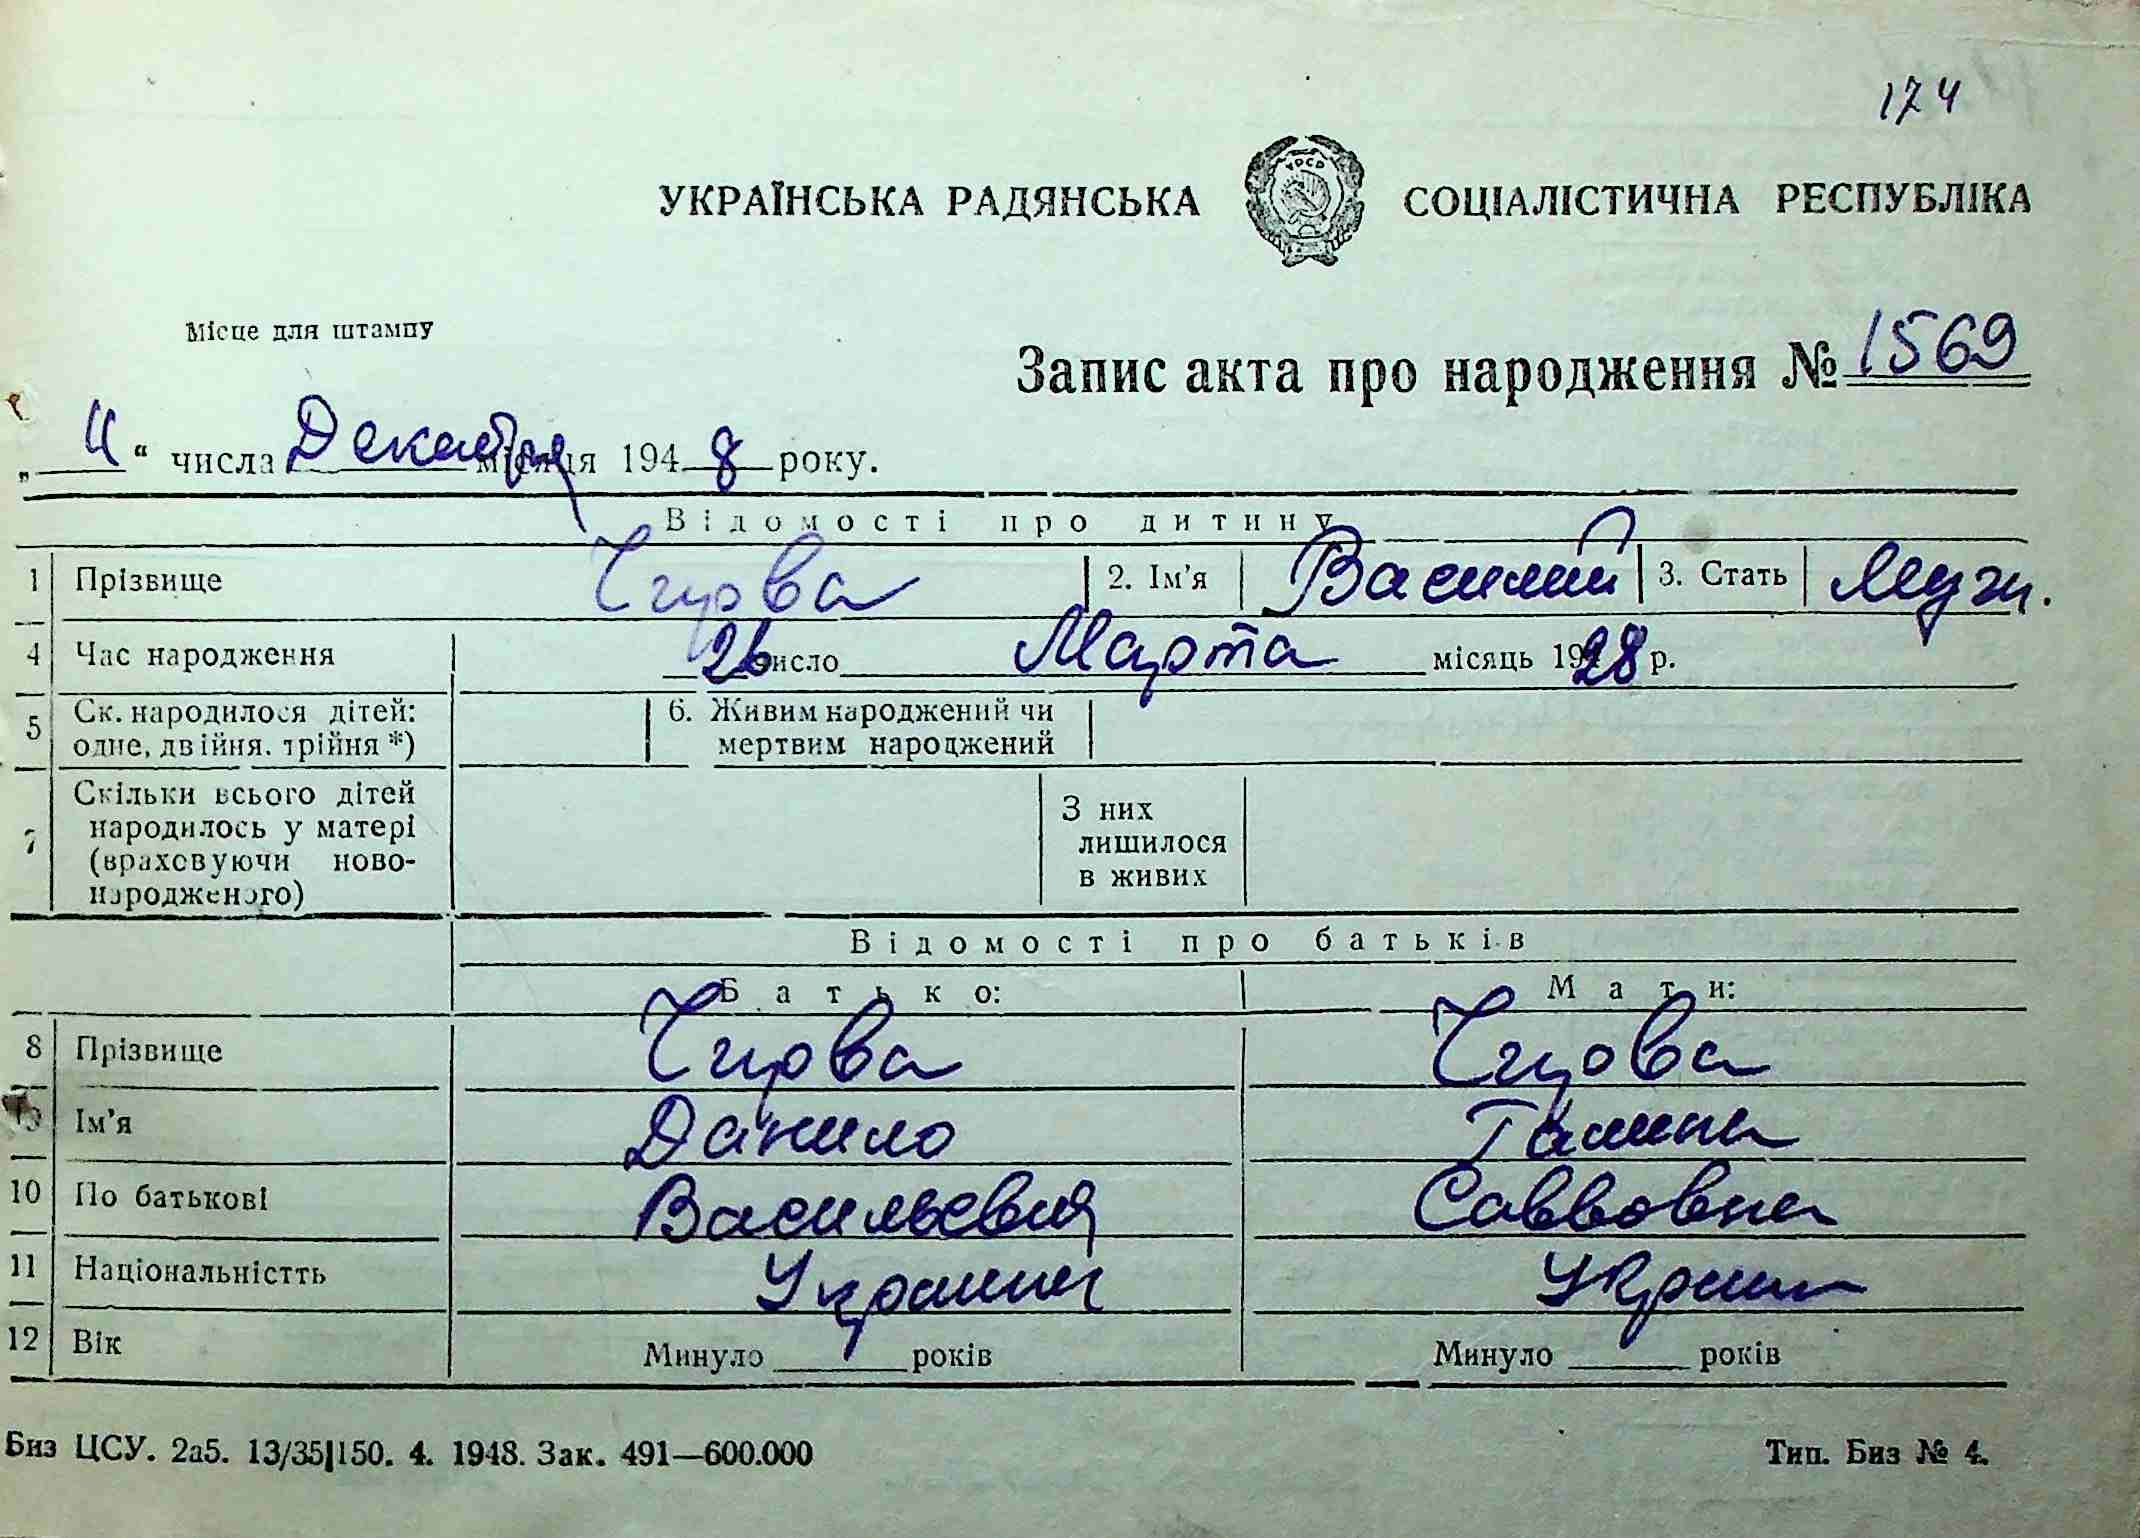 174
УКРАЇНСЬКА РАДЯНСЬКА СОЦІАЛІСТИЧНА РЕСПУБЛІКА
Місце для штампу
Запис акта про народження № 1569
„ “ числа Декабря місяця 1948 року.
Відомості про дитину
1 Прізвище 2. Ім'я Василий 3. Стать Муж.
4 Час народження 26 число Марта місяць 1928 р.
5 Ск. народилося дітей: одне, двійня, трійня *) 6. Живим народжений чи мертвим народжений
7 Скільки всього дітей народилось у матері (враховуючи новонародженого) З них лишилося в живих
Відомості про батьків
Батько: Мати:
8 Прізвище
9 Ім'я Данило Галина
10 По батькові Васильевич Саввовна
11 Національністть Украинец Украин
12 Вік Минуло років Минуло років
Биз ЦСУ. 2а5. 13/35|150. 4. 1948. Зак. 491—600.000 Тип. Биз № 4.